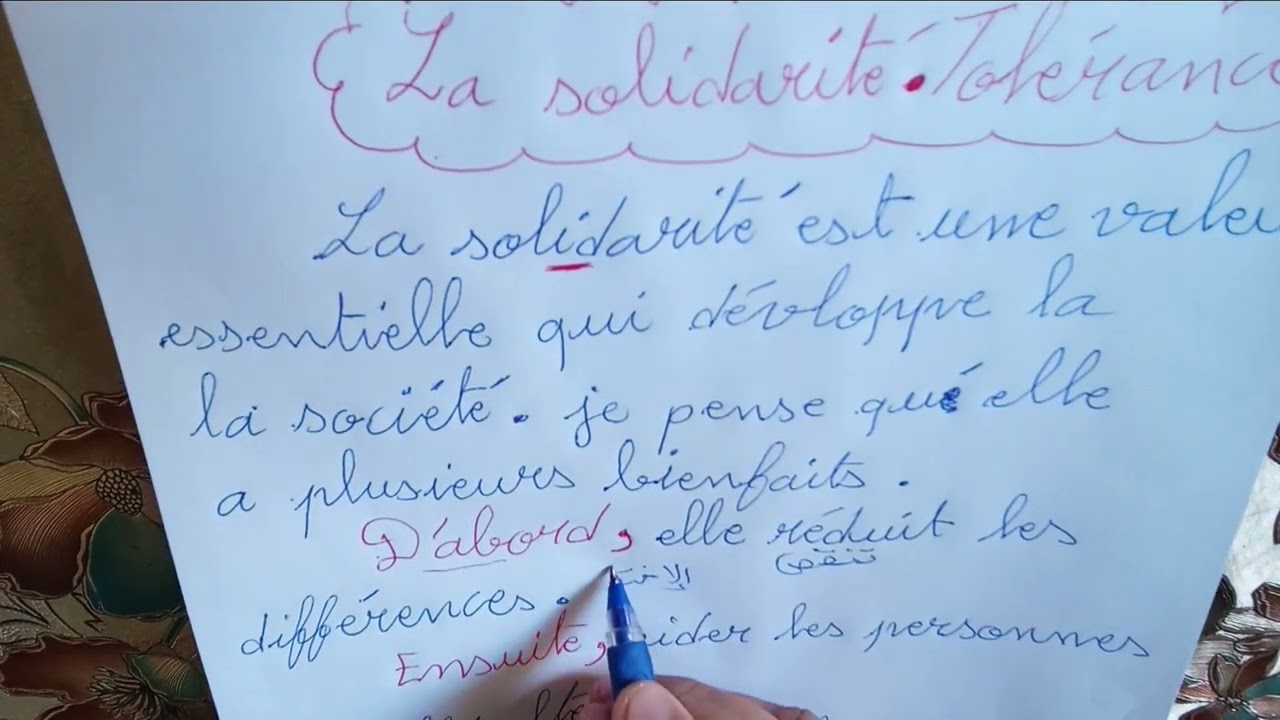 La solidarité. Toléranc
La solidarité est une valeu
essentielle qui dévloppe la
la société. je pense qu'elle
a plusieurs bienfaits.
D'abord, elle réduit les
تنقص
différences.
Ensuite, aider les personnes